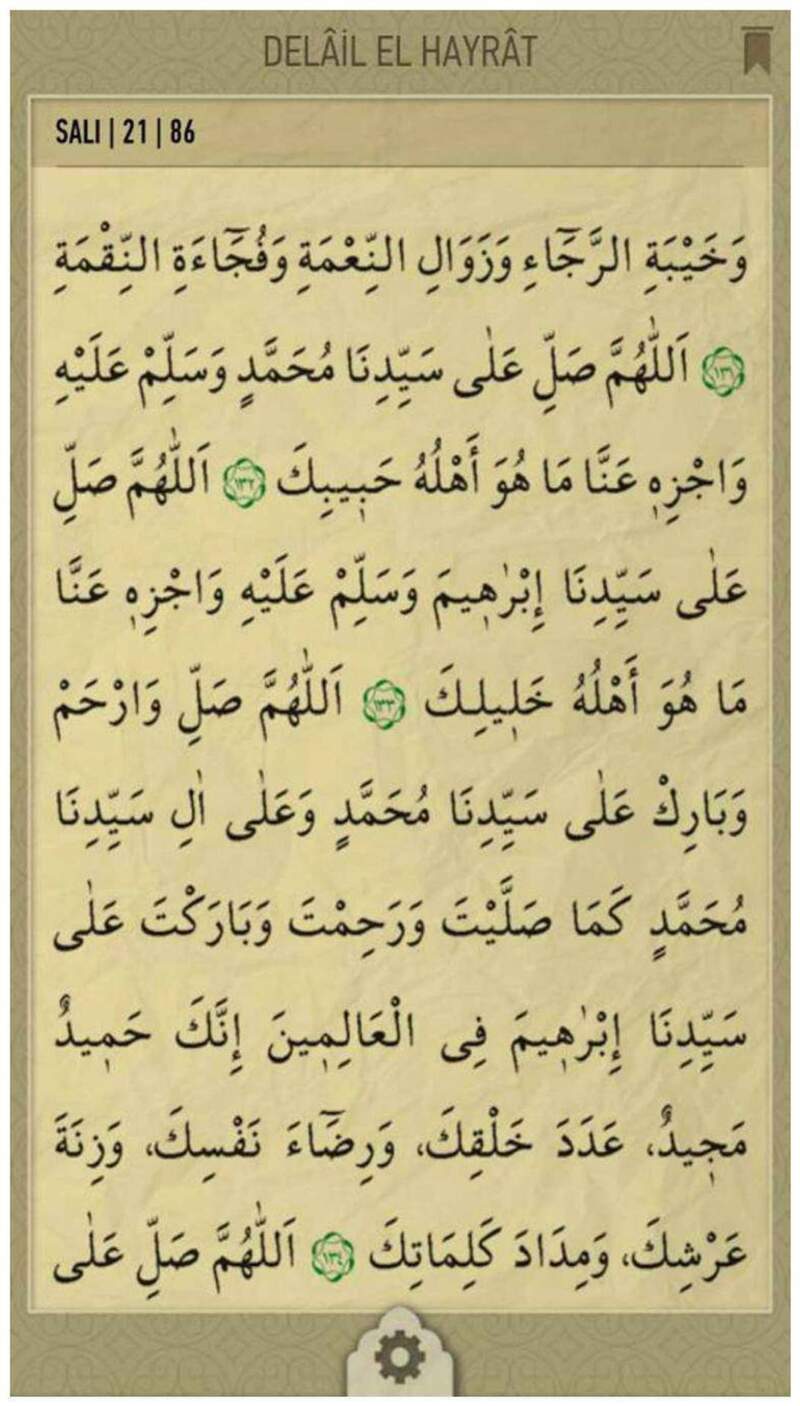 DELÂİL EL HAYRÂT
SALI | 21 | 86
وَخَيْبَةِ الرَّجَٓاءِ وَزَوَالِ النِّعْمَةِ وَفُجَٓاءَةِ النِّقْمَةِ
﴿١٣١﴾ اَللّٰهُمَّ صَلِّ عَلٰى سَيِّدِنَا مُحَمَّدٍ وَسَلِّمْ عَلَيْهِ
وَاجْزِهٖ عَنَّا مَا هُوَ أَهْلُهُ حَبٖيبِكَ ﴿١٣٢﴾ اَللّٰهُمَّ صَلِّ
عَلٰى سَيِّدِنَا إِبْرٰهٖيمَ وَسَلِّمْ عَلَيْهِ وَاجْزِهٖ عَنَّا
مَا هُوَ أَهْلُهُ خَلٖيلِكَ ﴿١٣٣﴾ اَللّٰهُمَّ صَلِّ وَارْحَمْ
وَبَارِكْ عَلٰى سَيِّدِنَا مُحَمَّدٍ وَعَلٰى اٰلِ سَيِّدِنَا
مُحَمَّدٍ كَمَا صَلَّيْتَ وَرَحِمْتَ وَبَارَكْتَ عَلٰى
سَيِّدِنَا إِبْرٰهٖيمَ فِى الْعَالِمٖينَ إِنَّكَ حَمٖيدٌ
مَجٖيدٌ، عَدَدَ خَلْقِكَ، وَرِضَٓاءَ نَفْسِكَ، وَزِنَةَ
عَرْشِكَ، وَمِدَادَ كَلِمَاتِكَ ﴿١٣٤﴾ اَللّٰهُمَّ صَلِّ عَلٰى